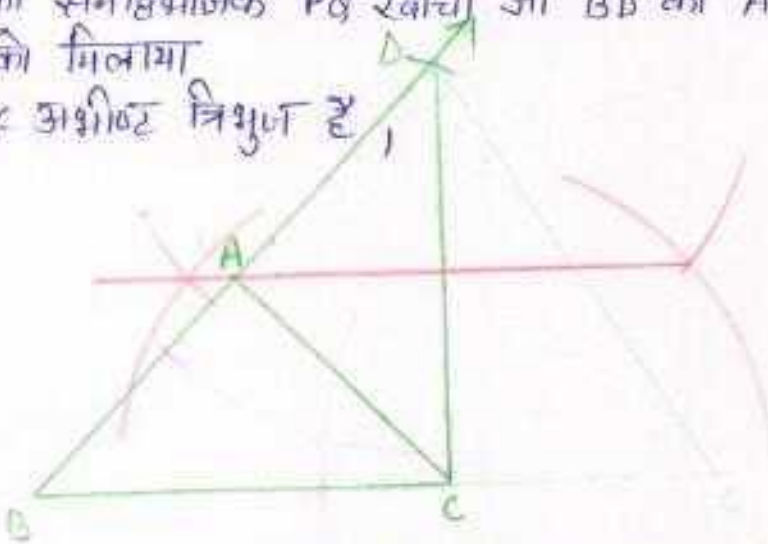 समद्विभाजक PQ खींचा जो BD को A
को मिलाया
अभीष्ट त्रिभुज है ,
D
A
B
C